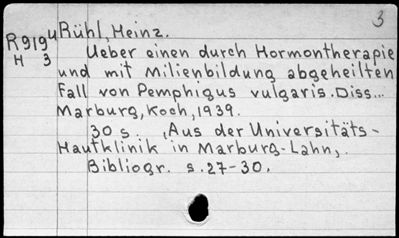 3
R919u Rühl, Heinz.
H 3 Ueber einen durch Hormontherapie
und mit Milienbildung abgeheilten
Fall von Pemphigus vulgaris. Diss...
Marburg, Koch, 1939.
30 s. (Aus der Universitäts-
Hautklinik in Marburg-Lahn).
Bibliogr. s. 27-30.